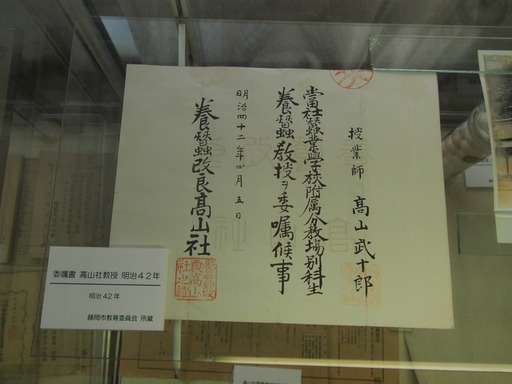 授業師 高山武十郎
當社蠶業學校附属分教場別科生
養蠶教授ヲ委嘱候事
明治四十二年四月五日
養蠶改良高山社
委嘱書 高山社教授 明治42年
明治42年
藤岡市教育委員会 所蔵